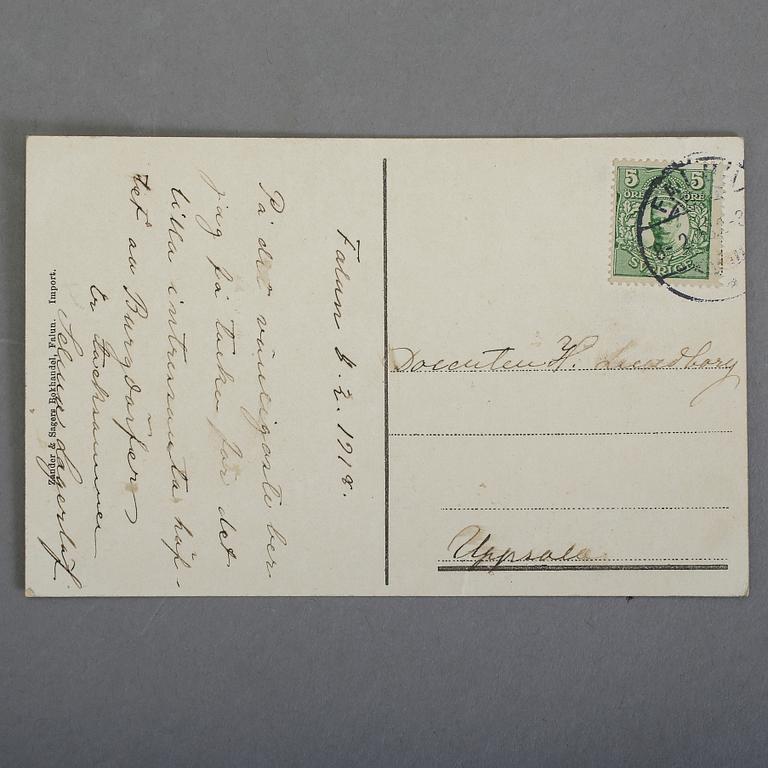 Falun 4. 2. 1918.
På det vänligaste ber
jag få tacka för det
lilla intressanta häf-
tet av Burgdörfer
Er tacksamme
Selma Lagerlöf.
Zander & Sagers Bokhandel, Falun. Import.
5 5
ÖRE ÖRE
SVERIGE
FALUN
Docenten H. Lundborg
Uppsala